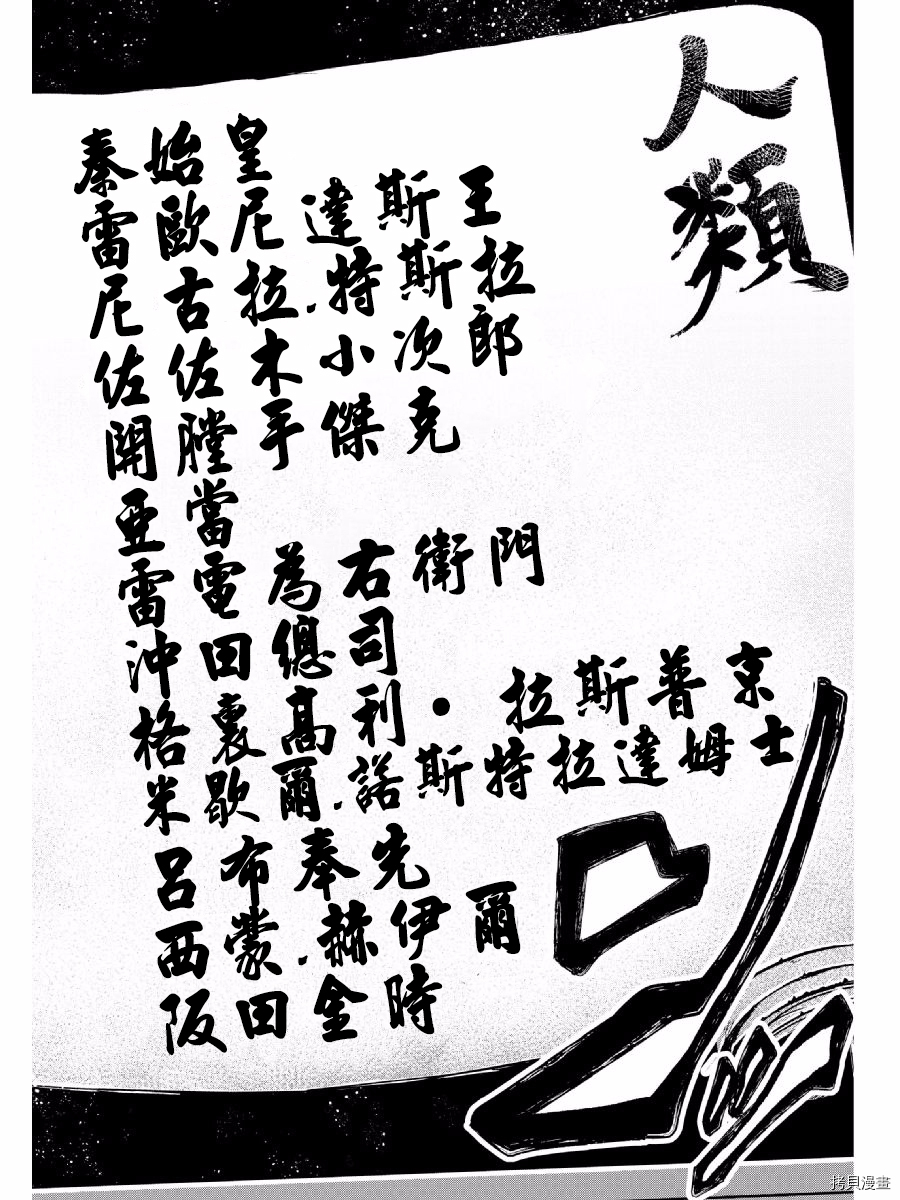 人類
秦始皇
雷歐尼達斯王
尼古拉.特斯拉
佐佐木小次郎
開膛手傑克
亞當
雷電為右衛門
沖田總司
格裏高利·拉斯普京
米歇爾.諾斯特拉達姆士
呂布奉先
西蒙.赫伊爾
阪田金時
拷貝漫畫